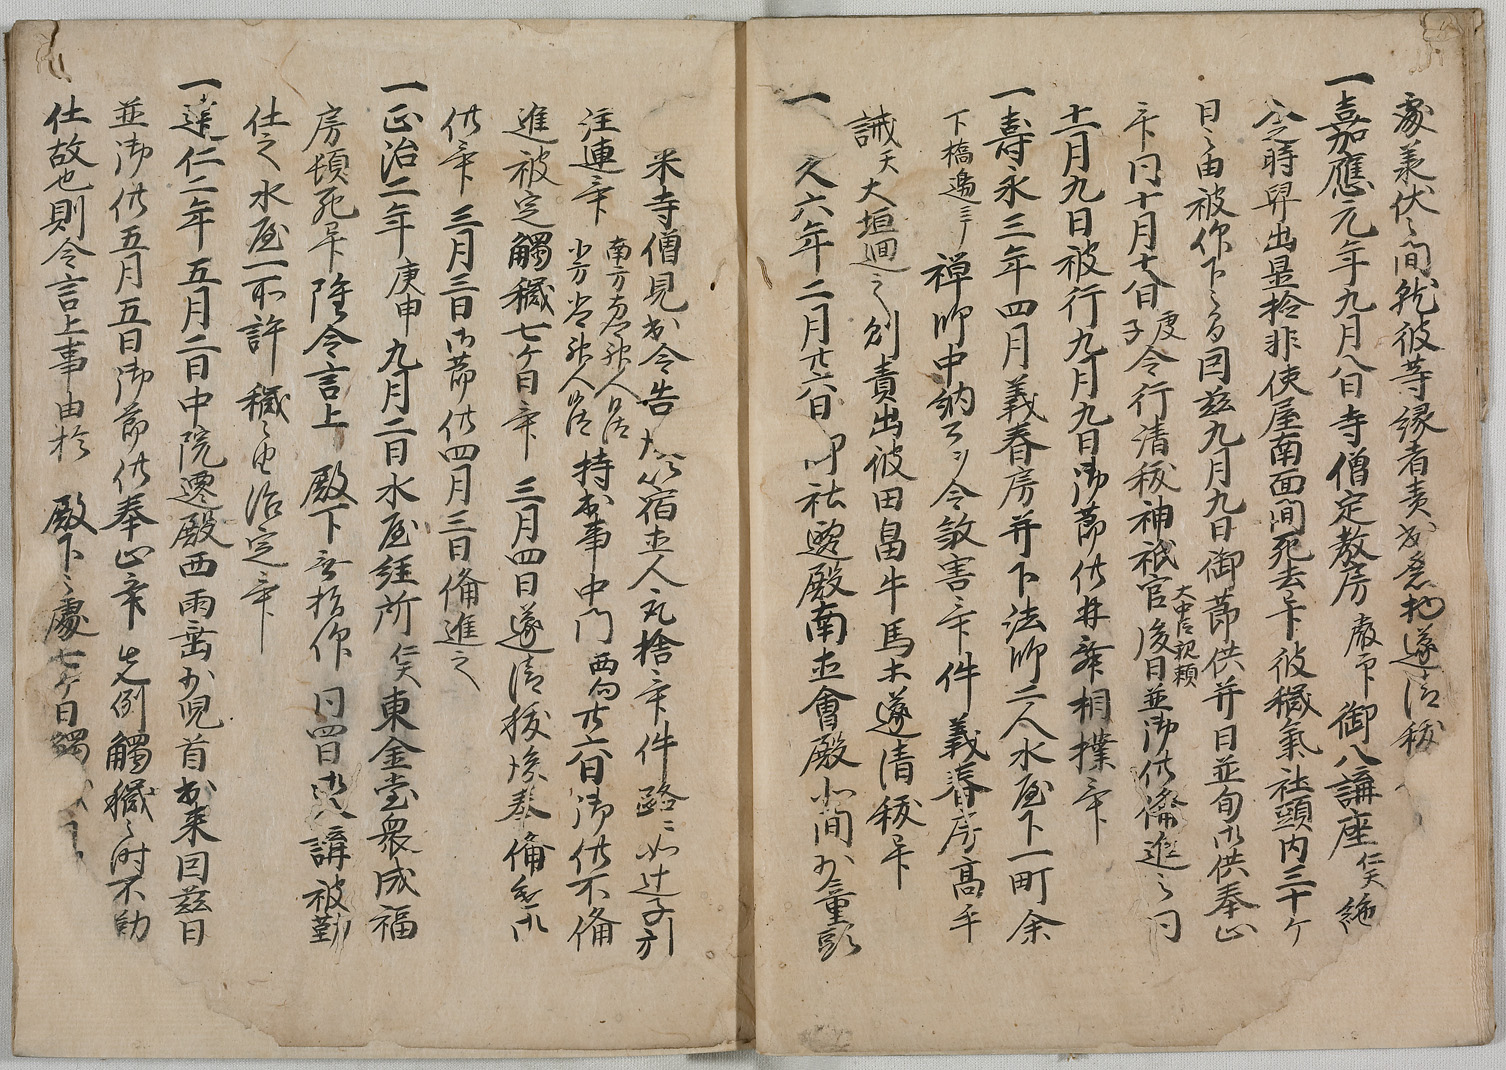 處蒙伏之間就彼等縁者責出
一嘉應元年九月八日寺僧定教房 御八講座仁天絶
入之時舁出畳捨非使屋南面間死去畢彼穢氣社頭内三十ケ
日之由被仰下之間因茲九月九日御節供并日並旬御供奉止
畢同十月十八日庚子令行清秡神祇官大中臣親頼後日並御供俻進之同
十一月九日被行九月九日御節供并舞相撲畢
一壽永三年四月義春房并下法師二人水屋下一町余
下橋邊ニテ禅師中納言ヲ令敦害畢件義春房高手
誡天大垣廻之剋責出彼田畠牛馬等遂清秡畢
一 久六年二月廿六日 社遷殿南直會殿北間 童頭
米寺僧見出令告 宿直人丸捨畢件路ニ如辻子引
注連畢 南方者南郷神人沙汰 北方者北郷神人沙汰 持出事中門 廿六日御供不俻
進被定觸穢七ケ日畢 三月四日遂清秡後奉俻 御
供畢 三月三日御節供四月三日俻進之
一正治二年庚申九月二日水屋経所仁天東金堂衆成福
房頓死畢 隆令言上 殿下無指仰 同四日御八講被勤
仕之水屋一所許穢之由治定畢
一建仁二年五月二日中院遷殿西雨垂 児首出来因茲日
並御供五月五日御節供奉止畢先例觸穢之時不勤
仕故也則令言上事由於 殿下之處七ケ日觸